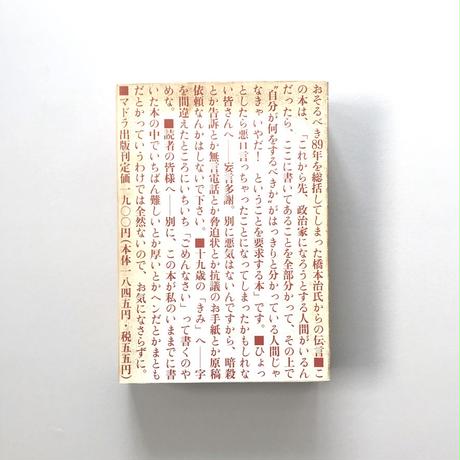 おそるべき89年を総括してしまった橋本治氏からの伝言■こ
の本は、「これから先、政治家になろうとする人間がいるん
だったら、ここに書いてあることを全部分かって、その上で
“自分が何をするべきか”がはっきりと分かっている人間じゃ
なきゃいやだ！　ということを要求する本」です。■ひょっ
としたら悪口言っちゃったことになってしまったかもしれな
い皆さんへ――妄言多謝。別に悪気はないんですから、暗殺
とか告訴とか無言電話とか脅迫状とか抗議のお手紙とか原稿
依頼なんかはしないで下さい。■十九歳の「きみ」へ――字
を間違えたところにいちいち「ごめんなさい」って書くのや
めな。■読者の皆様へ――別に、この本が私のいままでに書
いた本の中でいちばん難しいとか厚いとかヘンだとかまとも
だとかっていうわけでは全然ないので、お気になさらずに。
■マドラ出版刊定価一九〇〇円（本体一八四五円・税五五円）